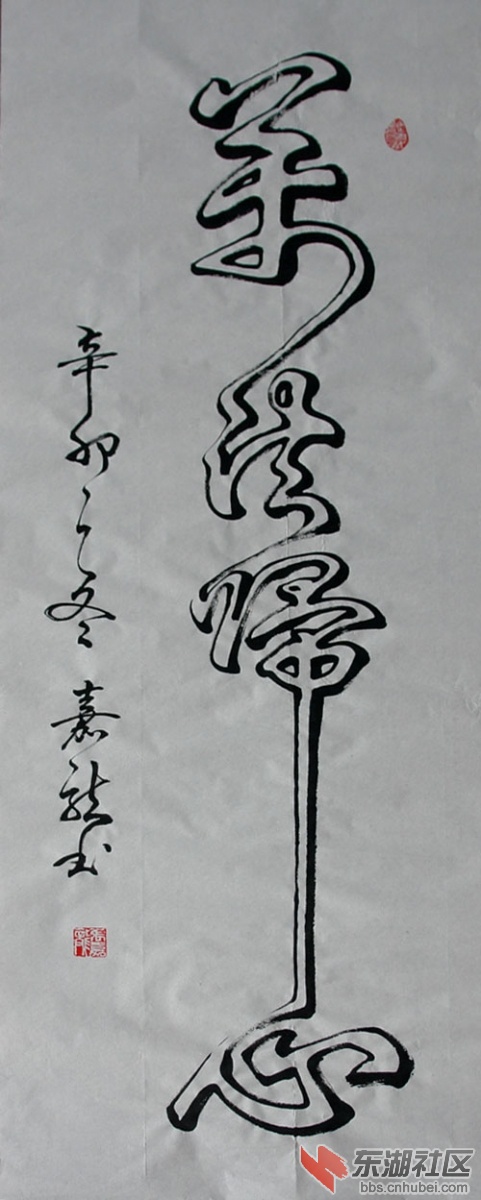 萬法歸心
辛卯之冬 嘉龍書
东湖社区
bbs.cnhubei.com